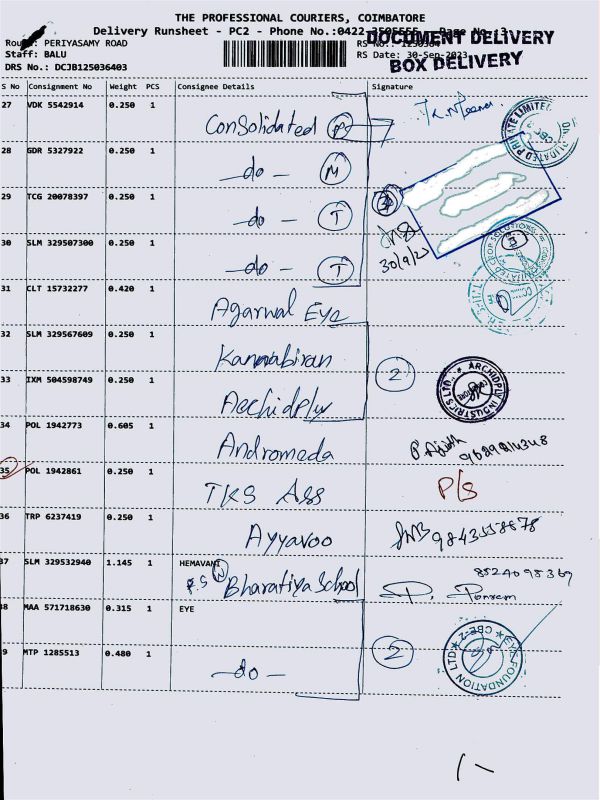 THE PROFESSIONAL COURIERS, COIMBATORE
Delivery Runsheet - PC2 - Phone No.:0422 Page No. 3
DOCUMENT DELIVERY
BOX DELIVERY
PERIYASAMY ROAD
Staff: BALU
RS Date: 30-Sep-2023
DRS No.: DCJB125036403
S No Consignment No Weight PCS Consignee Details Signature
27 VDK 5542914 0.250 1 Consolidated PS
28 GDR 5327922 0.250 1 -do- M
29 TCG 20078397 0.250 1 -do- T
30/9/2
30 SLM 329507300 0.250 1 -do- T
31 CLT 15732277 0.420 1 Agarwal Eye
32 SLM 329567609 0.250 1 Kannabiran
2
33 IXM 504598749 0.250 1 Archidply
ARCHIDPLY INDUSTRIES LTD.
34 POL 1942773 0.605 1 Andromeda
35 POL 1942861 0.250 1 TKS Ass P/s
36 TRP 6237419 0.250 1 Ayyavoo
37 SLM 329532940 1.145 1 HEMAVANI
P.S N Bharatiya School 8524098369
38 MAA 571718630 0.315 1 EYE
39 MTP 1285513 0.480 1 -do- 2
EYE FOUNDATION LTD CBE-2